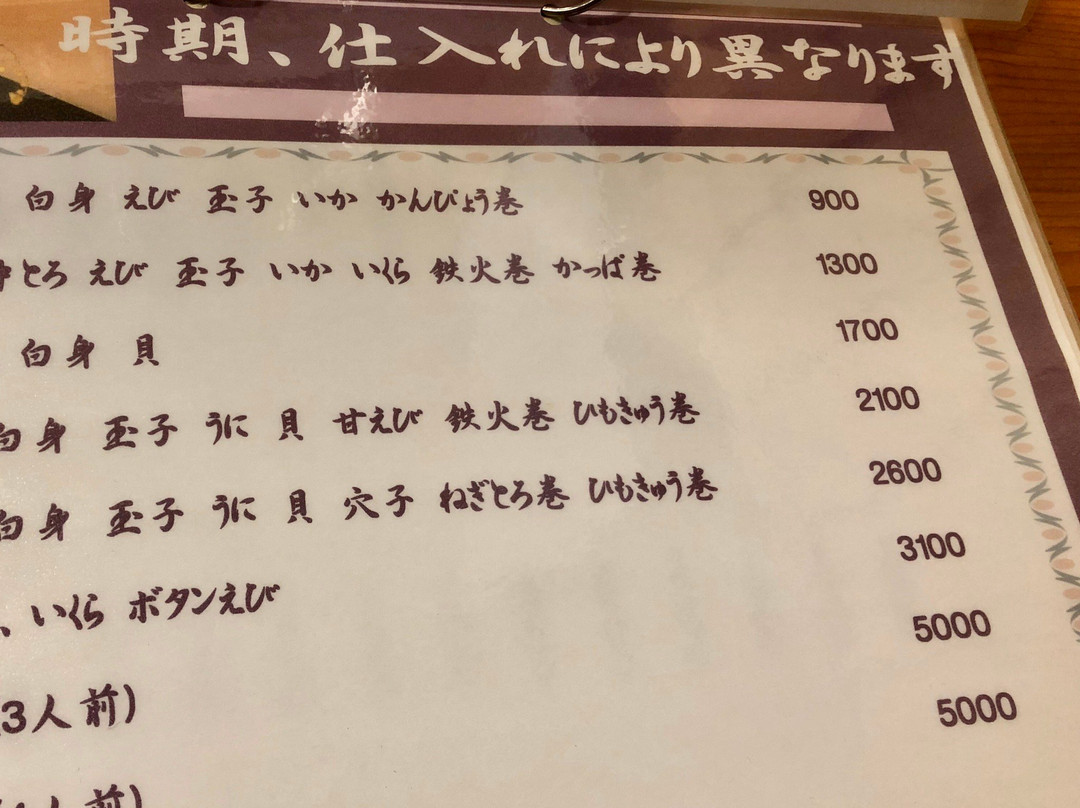 時期、仕入れにより異なります
白身 えび 玉子 いか かんぴょう巻 900
とろ えび 玉子 いか いくら 鉄火巻 かっぱ巻 1300
白身 貝 1700
白身 玉子 うに 貝 甘えび 鉄火巻 ひもきゅう巻 2100
白身 玉子 うに 貝 穴子 ねぎとろ巻 ひもきゅう巻 2600
、いくら ボタンえび 3100
3人前) 5000
人前) 5000